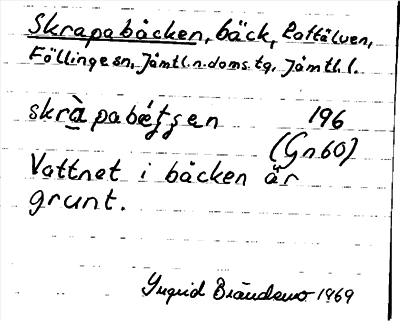 Skrapabäcken, bäck, Rattälven,
Föllinge sn, Jämtl. n. doms. tg, Jämtl. l.
skrà̱pabétʂen 196
(Gn60)
Vattnet i bäcken är
grunt.
Ingrid Brändemo 1969